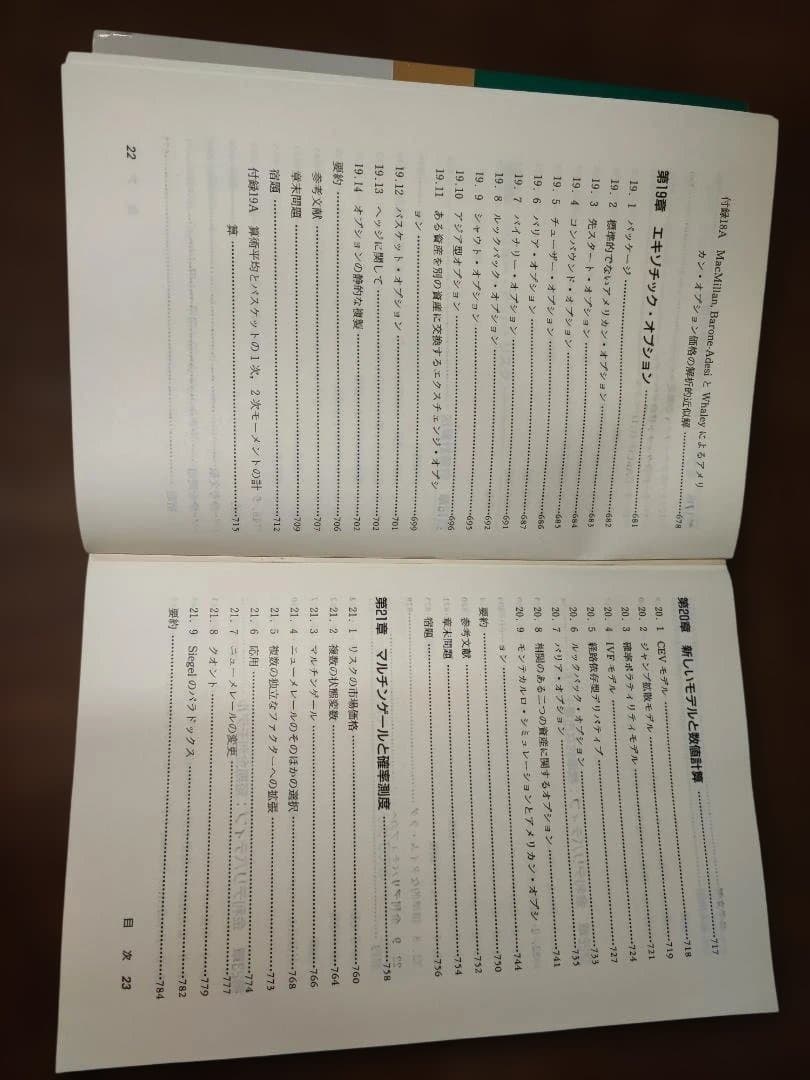 付録18A MacMillan, Barone-Adesi と Whaley によるアメリ
カン・オプション価格の解析的近似解 ……678
第19章 エキゾチック・オプション ……681
19. 1 パッケージ ……682
19. 2 標準的でないアメリカン・オプション ……683
19. 3 先スタート・オプション ……684
19. 4 コンパウンド・オプション ……685
19. 5 チューザー・オプション ……686
19. 6 バリア・オプション ……687
19. 7 バイナリー・オプション ……691
19. 8 ルックバック・オプション ……692
19. 9 シャウト・オプション ……695
19.10 アジア型オプション ……696
19.11 ある資産を別の資産に交換するエクスチェンジ・オプシ
ョン ……699
19.12 バスケット・オプション ……701
19.13 ヘッジに関して ……702
19.14 オプションの静的な複製 ……702
要約 ……706
参考文献 ……707
章末問題 ……709
宿題 ……712
付録19A 算術平均とバスケットの1次, 2次モーメントの計
算 ……715
22
第20章 新しいモデルと数値計算 ……717
20. 1 CEVモデル ……718
20. 2 ジャンプ拡散モデル ……719
20. 3 確率ボラティリティモデル ……721
20. 4 IVFモデル ……724
20. 5 経路依存型デリバティブ ……727
20. 6 ルックバック・オプション ……733
20. 7 バリア・オプション ……735
20. 8 相関のある二つの資産に関するオプション ……741
20. 9 モンテカルロ・シミュレーションとアメリカン・オプシ
ョン ……744
要約 ……750
参考文献 ……752
章末問題 ……754
宿題 ……756
第21章 マルチンゲールと確率測度 ……758
21. 1 リスクの市場価格 ……760
21. 2 複数の状態変数 ……764
21. 3 マルチンゲール ……766
21. 4 ニューメレールのそのほかの選択 ……768
21. 5 複数の独立なファクターへの拡張 ……773
21. 6 応用 ……774
21. 7 ニューメレールの変更 ……777
21. 8 クオント ……779
21. 9 Siegelのパラドックス ……782
要約 ……784
目 次 23